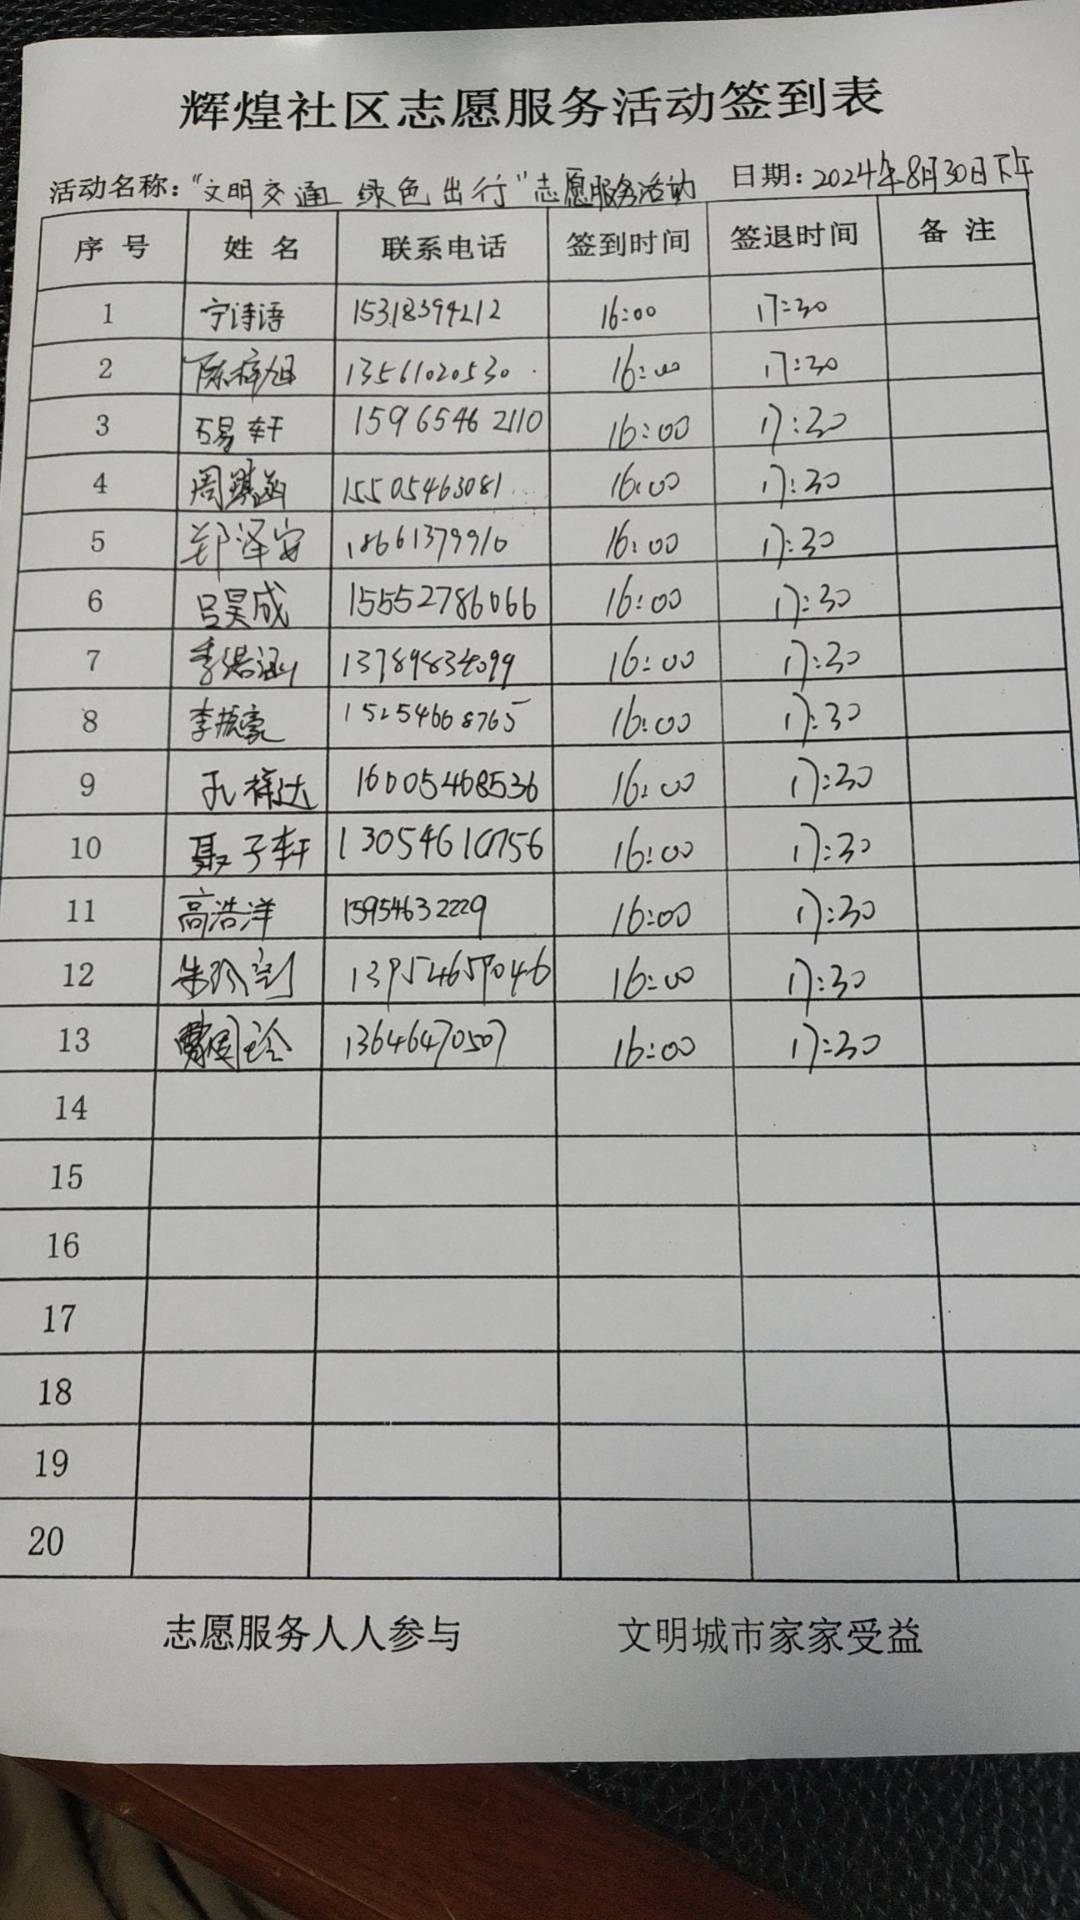 辉煌社区志愿服务活动签到表
活动名称：“文明交通 绿色出行”志愿服务活动 日期：2024年8月30日下午
序号 姓名 联系电话 签到时间 签退时间 备注
1 宁诗语 15318394212 16:00 17:30
2 陈梓旭 13561020530 16:00 17:30
3 石易轩 15965462110 16:00 17:30
4 周鹏涵 15505463081 16:00 17:30
5 郑泽安 18661379910 16:00 17:30
6 吕昊成 15552786066 16:00 17:30
7 季浩涵 13789834099 16:00 17:30
8 李振豪 15254668765 16:00 17:30
9 孔梓达 16005468536 16:00 17:30
10 聂子轩 13054610756 16:00 17:30
11 高浩洋 15954632229 16:00 17:30
12 13954659046 16:00 17:30
13 13646470507 16:00 17:30
14
15
16
17
18
19
20
志愿服务人人参与 文明城市家家受益